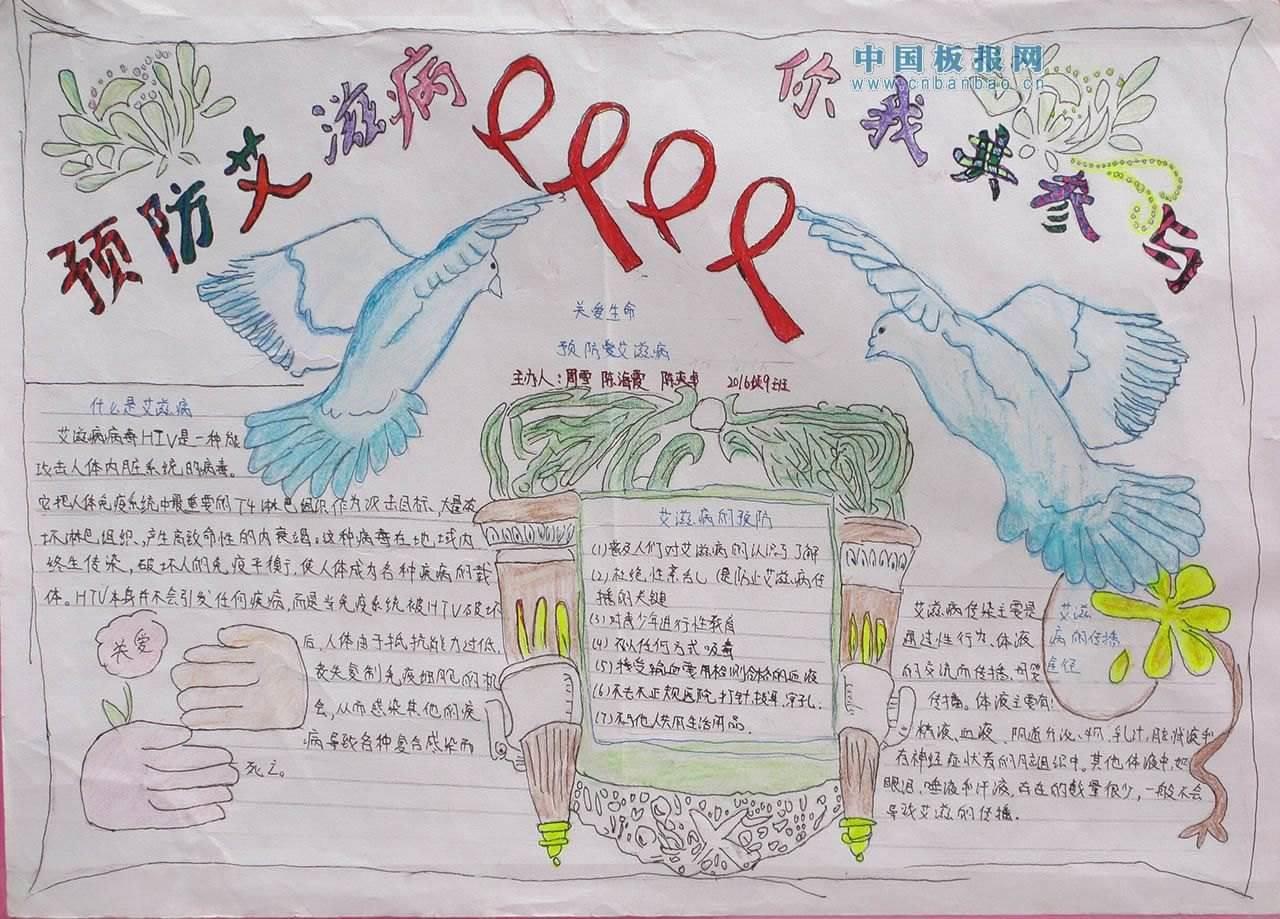 预防艾滋病
你我共参与
中国板报网
www.cnbanbao.cn
关爱生命
预防爱艾滋病
主办人:周雪 陈海霞 陈爽
2016级9班
什么是艾滋病
艾滋病病毒HIV是一种能
攻击人体内脏系统的病毒。
它把人体免疫系统中最重要的T4淋巴组织作为攻击目标、大量破
坏淋巴组织、产生高致命性的内衰竭。这种病毒在地域内
终生传染,破坏人的免疫平横,使人体成为各种疾病的载
体。HIV本身并不会引发任何疾病,而是当免疫系统被HIV破坏
后,人体由于抵抗能力过低,
丧失复制免疫细胞的机
会,从而感染其他的疾
病导致各种复合感染而
死亡。
关爱
艾滋病的预防
(1)普及人们对艾滋病的认识了解
(2)杜绝性紊乱(是防止艾滋病传
播的关键
(3)对青少年进行性教育
(4)不以任何方式吸毒
(5)接受输血要用检测合格的血液
(6)不去不正规医院,打针,拔牙,穿孔.
(7)不与他人共用生活用品.
艾滋
病的传播
途径
艾滋病传染主要是
通过性行为、体液
的交流而传播,母婴
传播。体液主要有:
精液、血液、阴道分泌、乳汁、脑脊液和
在神经症状者的脑组织中。其他体液中,如
眼泪,唾液和汗液,存在的数量很少,一般不会
导致艾滋的传播.